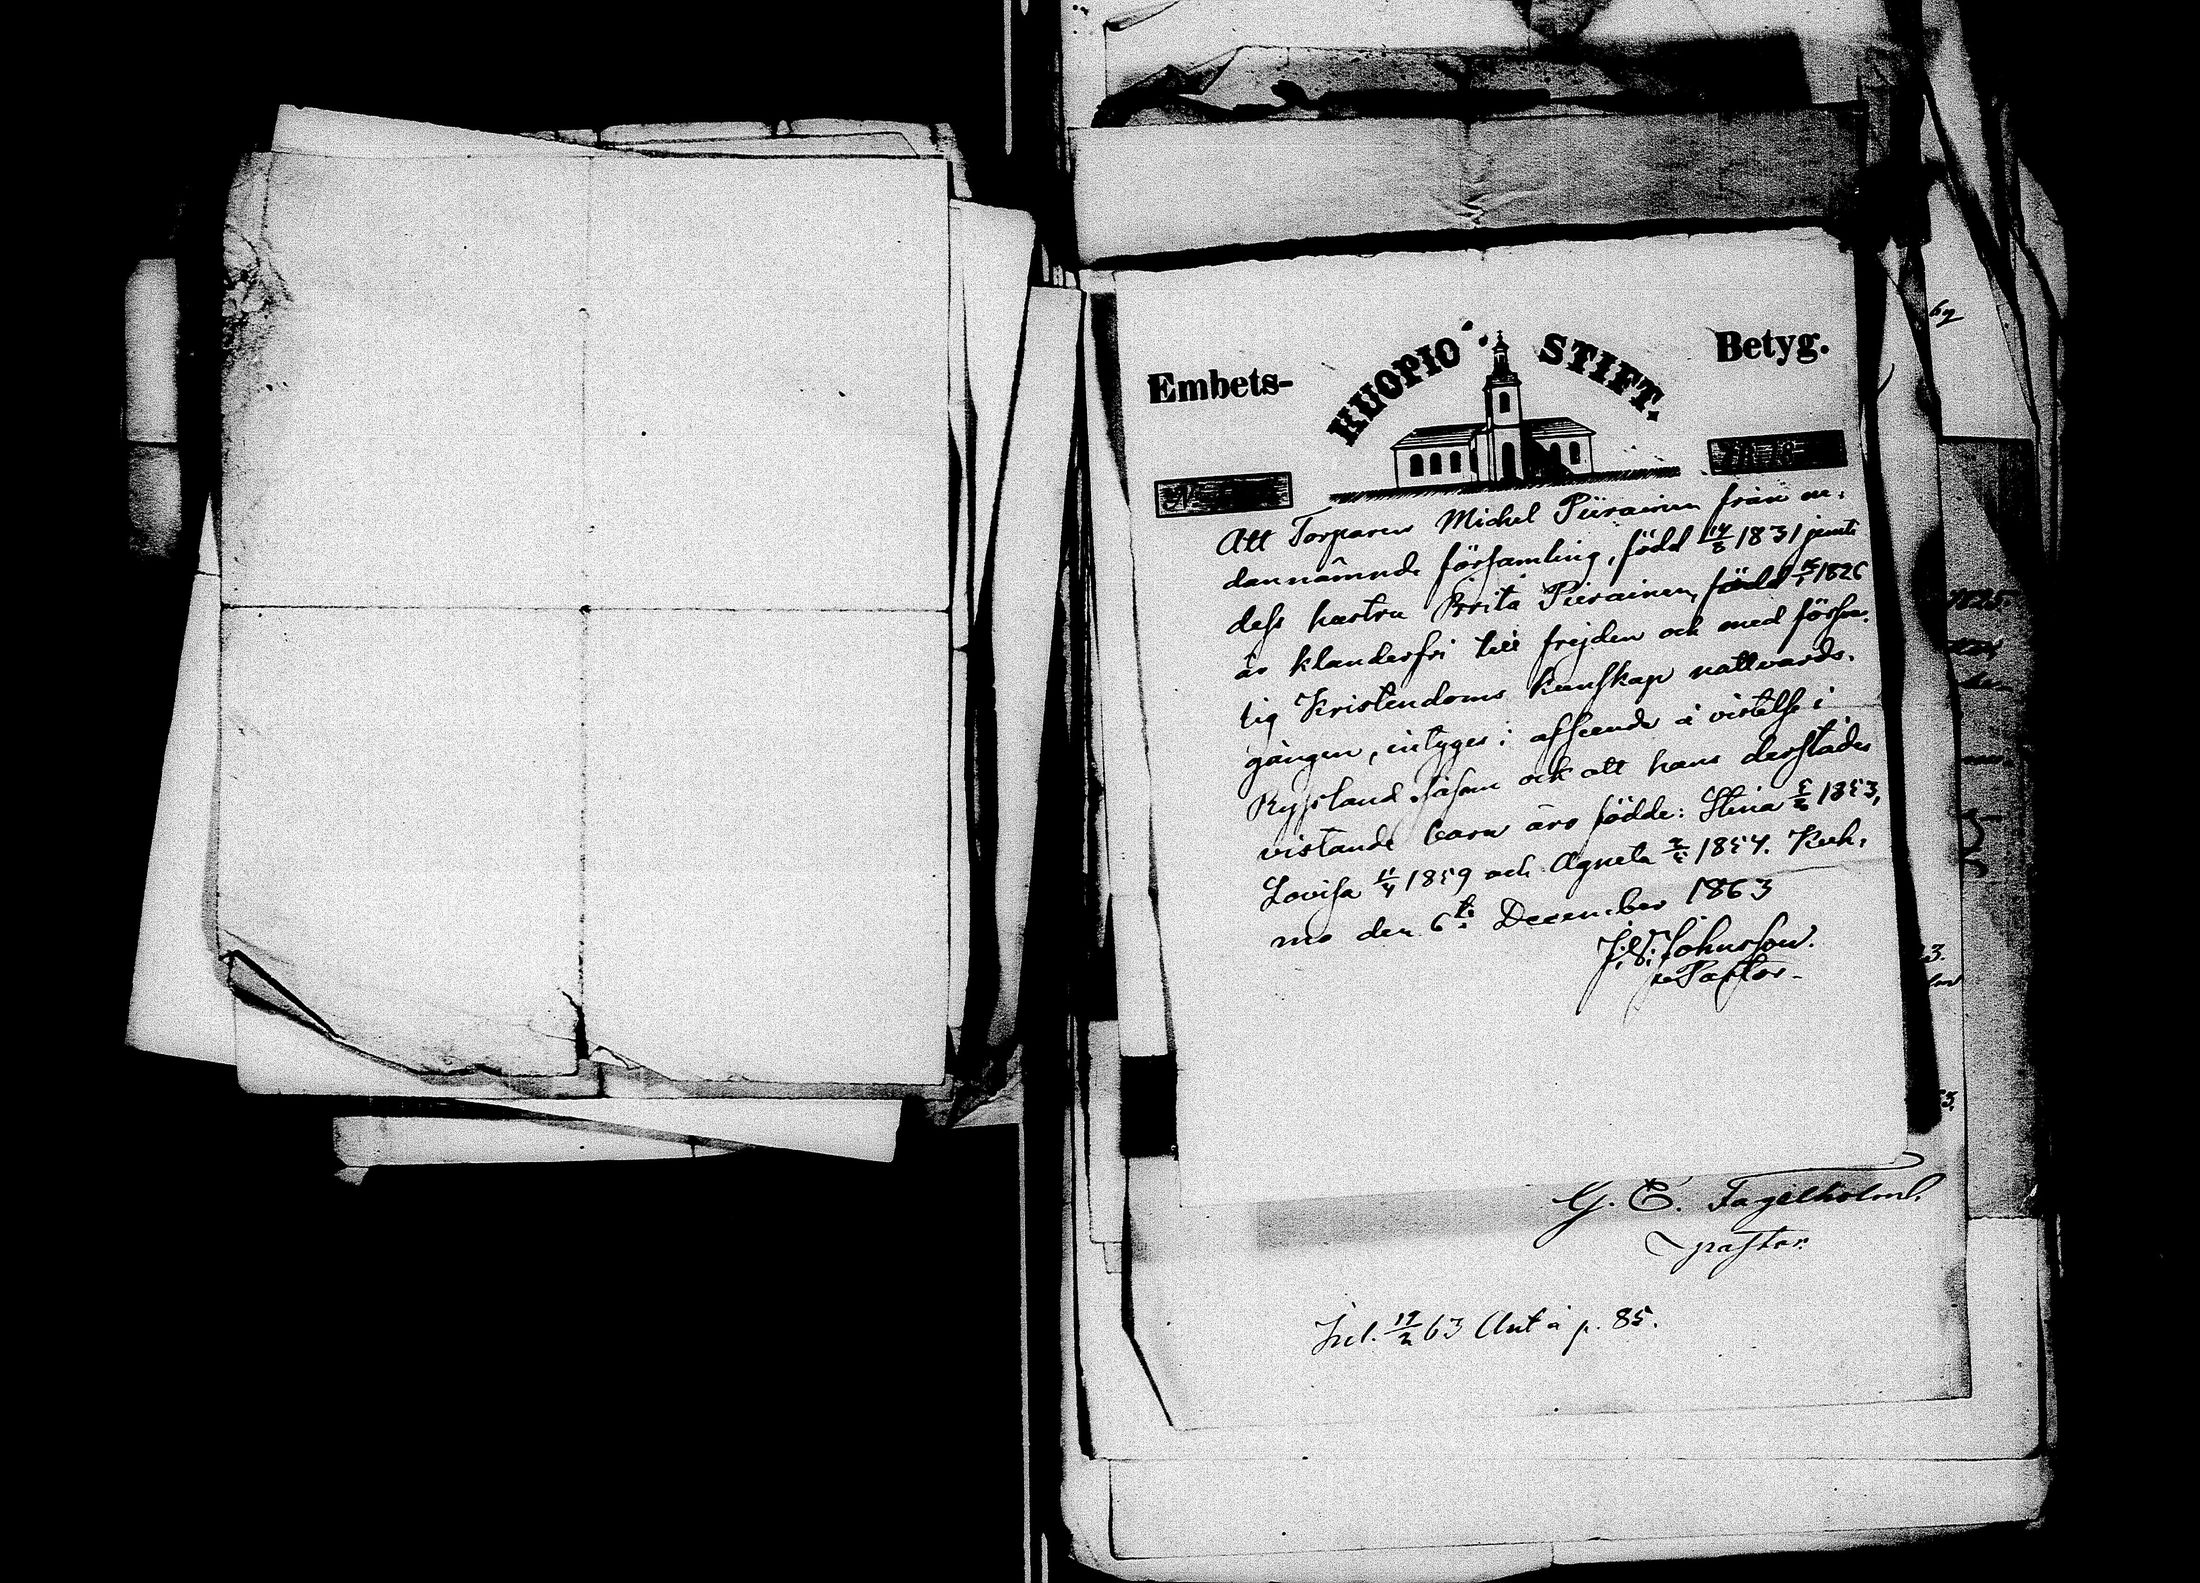 Embets-
KUOPIO STIFT.
Betyg.
N
Att Torparen Michel Piirainen från en-
dannämnde församling, född 14/8 1831 jemte
dess hustru Brita Piirainen, född 1826
är klanderfri till frejden och med försva-
lig Kristendoms kunskap nattvards-
gången, intygas i afseende å vistelse i
Ryssland såsom ock att hans derstädes
vistande barn äro födde: Stina 1853,
Lovisa 11/4 1859 och Agneta 1854. Kuh-
mo den 6te December 1863
Johnsson.
Pastor.
G. E. Fagelholm.
pastor
Inl. 19/2 63 Ant å p. 85.